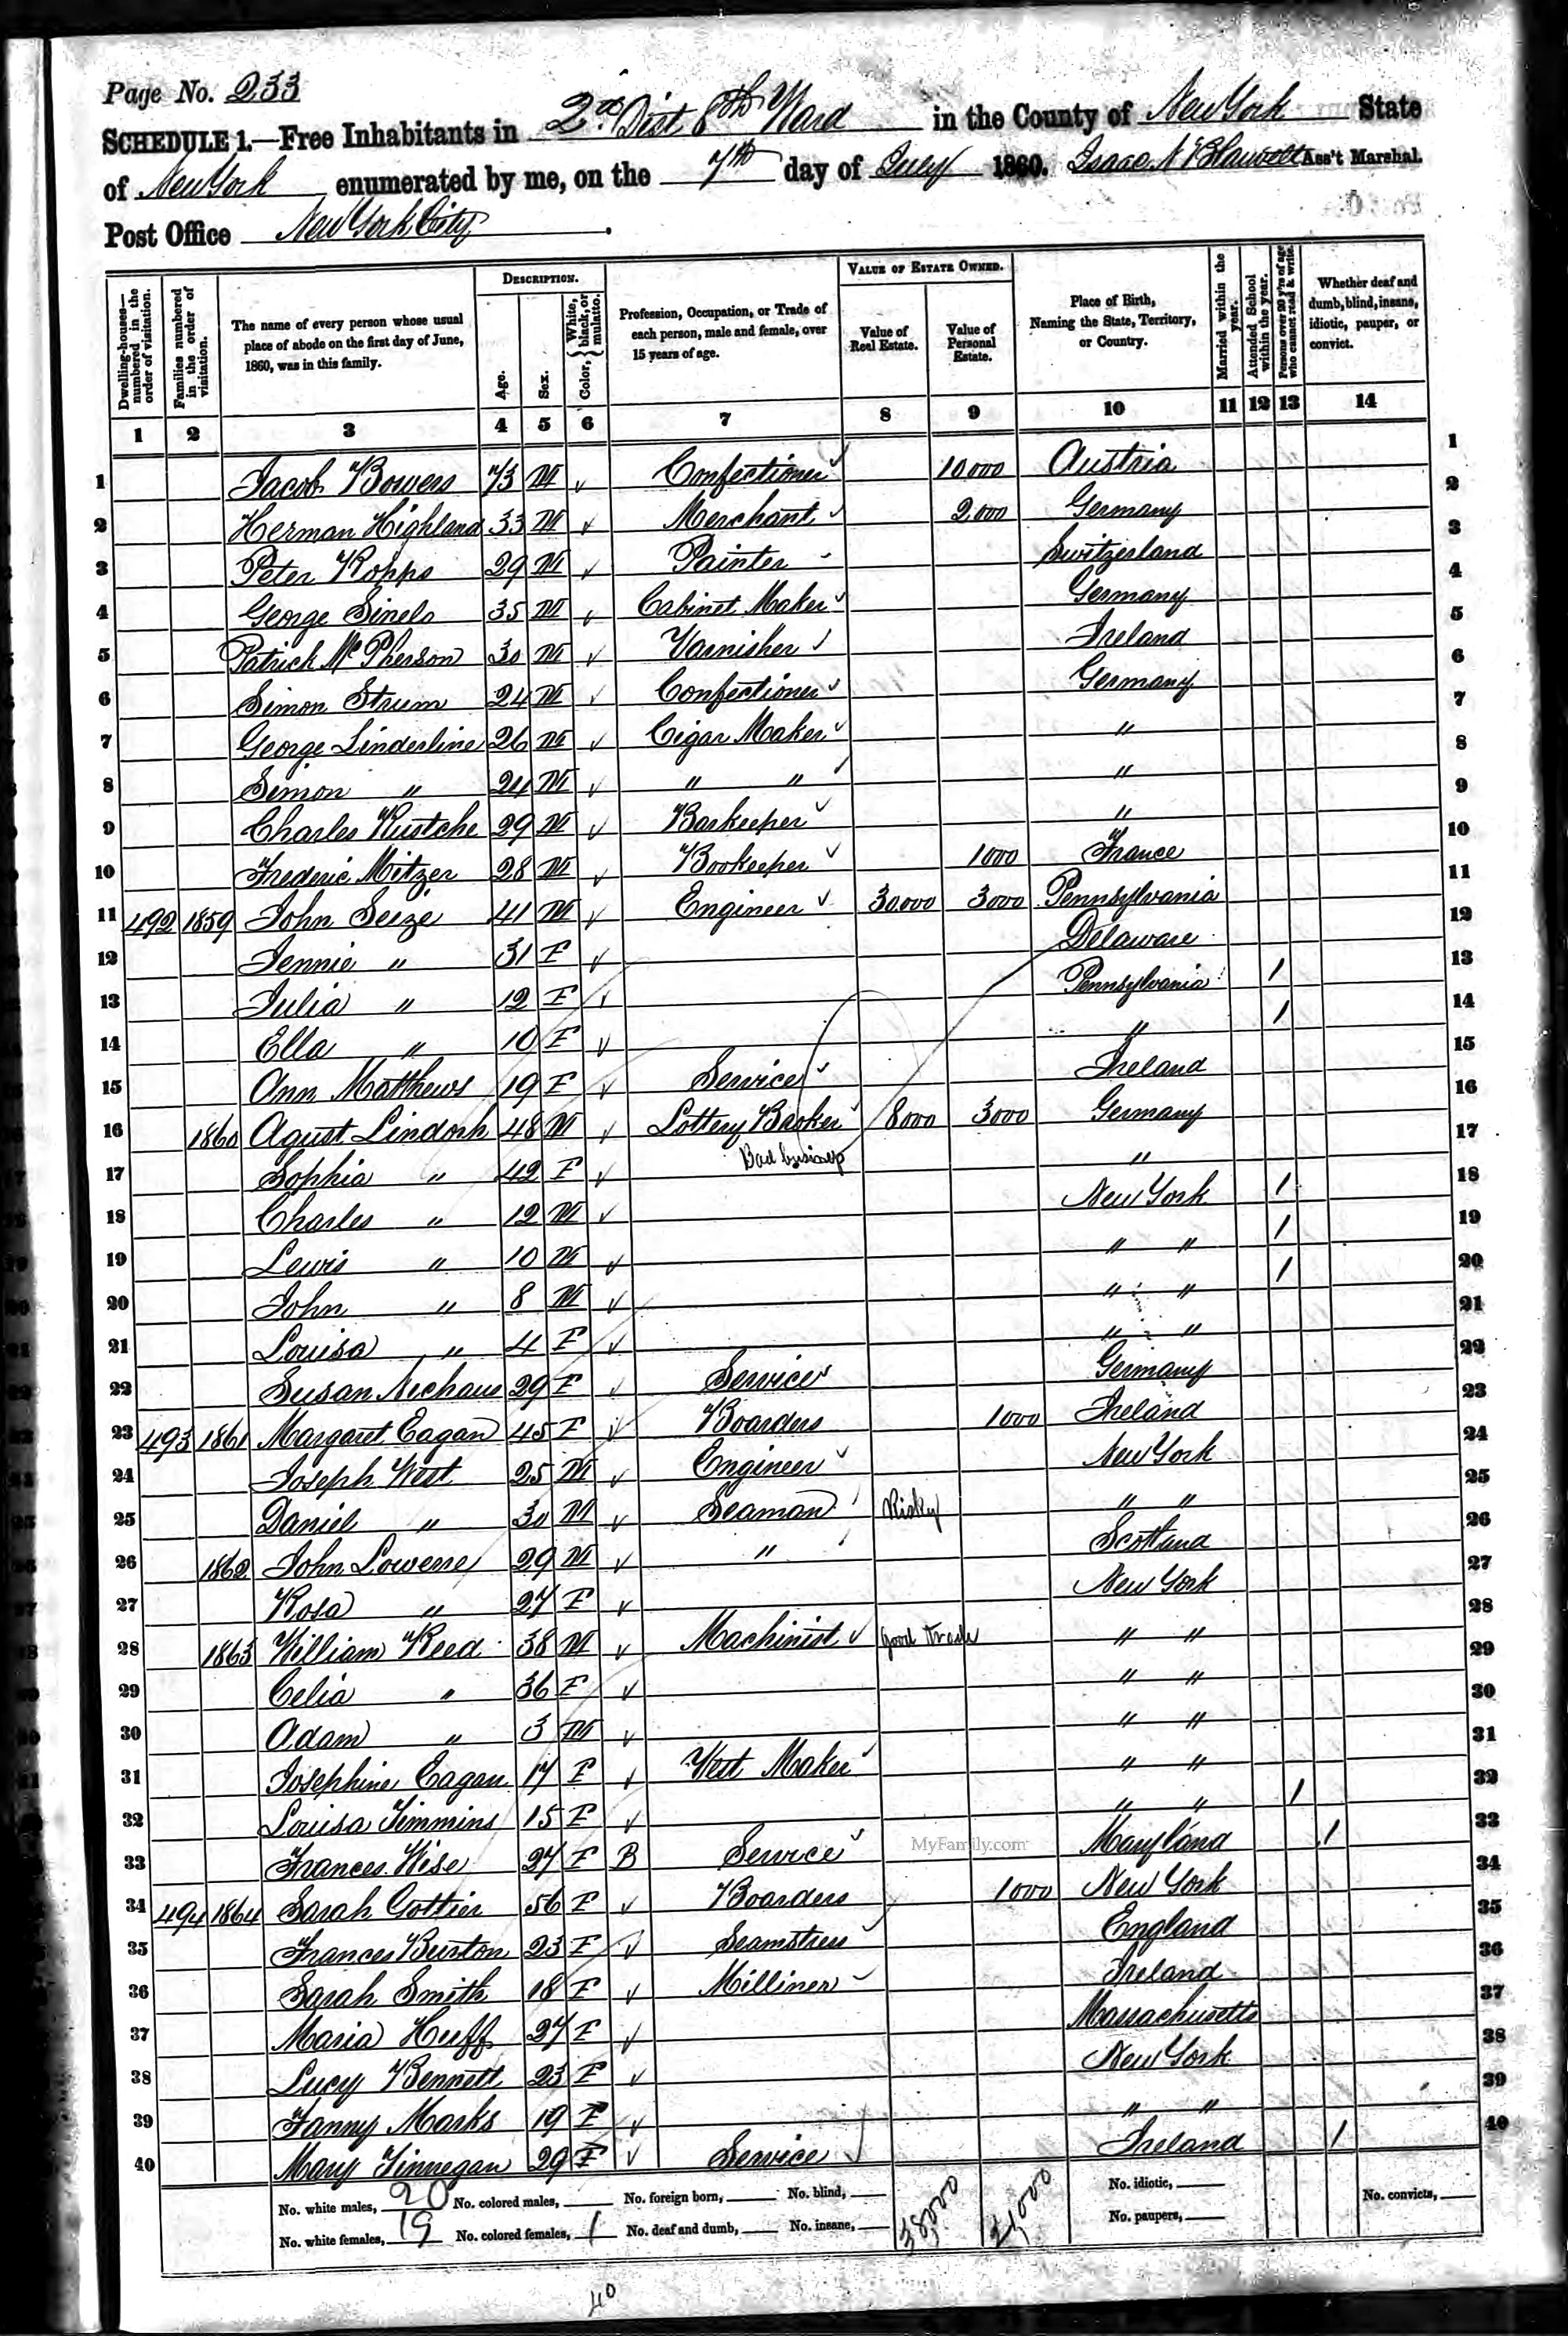 Page No. 233
SCHEDULE 1.—Free Inhabitants in 2nd Dist 8th Ward in the County of New York State
of New York enumerated by me, on the 7th day of July 1860. Isaac N Blauvelt Ass't Marshal.
Post Office New York City.
DESCRIPTION. VALUE OF ESTATE OWNED.
Dwelling-houses—numbered in the order of visitation. Families numbered in the order of visitation. The name of every person whose usual place of abode on the first day of June, 1860, was in this family. Age. Sex. Color, { White, black, or mulatto. Profession, Occupation, or Trade of each person, male and female, over 15 years of age. Value of Real Estate. Value of Personal Estate. Place of Birth, Naming the State, Territory, or Country. Married within the year. Attended School within the year. Persons over 20 y'rs of age who cannot read & write. Whether deaf and dumb, blind, insane, idiotic, pauper, or convict.
1 2 3 4 5 6 7 8 9 10 11 12 13 14
1 Jacob Bowers 73 M ✓ Confectioner ✓ 10,000 Austria 1
2 Herman Highland 33 M ✓ Merchant ✓ 2,000 Germany 2
3 Peter Kopps 29 M ✓ Painter Switzerland 3
4 George Sinels 35 M ✓ Cabinet Maker ✓ Germany 4
5 Patrick McPherson 30 M ✓ Varnisher ✓ Ireland 5
6 Simon Strum 24 M ✓ Confectioner ✓ Germany 6
7 George Linderline 26 M ✓ Cigar Maker ✓ " 7
8 Simon " 24 M ✓ " " ✓ " 8
9 Charles Kustche 29 M ✓ Barkeeper ✓ " 9
10 Frederic Mitzer 28 M ✓ Bookeeper ✓ 1000 France 10
11 492 1859 John Seize 41 M ✓ Engineer ✓ 30,000 3000 Pennsylvania 11
12 Jennie " 31 F ✓ Delaware 12
13 Julia " 12 F ✓ Pennsylvania 1 13
14 Ella " 10 F ✓ " 1 14
15 Ann Matthews 19 F ✓ Service ✓ Ireland 15
16 1860 Agust Lindorh 48 M ✓ Lottery Broker ✓ 8000 3000 Germany 16
Bad business
17 Sophia " 42 F ✓ " 17
18 Charles " 12 M ✓ New York 1 18
19 Lewis " 10 M ✓ " " 1 19
20 John " 8 M ✓ " " 1 20
21 Louisa " 4 F ✓ " " 21
22 Susan Nechaus 29 F ✓ Service Germany 22
23 493 1861 Margaret Eagan 45 F ✓ Boarders 1000 Ireland 23
24 Joseph West 25 M ✓ Engineer ✓ New York 24
25 Daniel " 30 M ✓ Seaman Risky " " 25
26 1862 John Lowerre 29 M ✓ " Scotland 26
27 Rosa " 27 F ✓ New York 27
28 1863 William Reed 38 M ✓ Machinist ✓ good trade " " 28
29 Celia " 36 F ✓ " " 29
30 Adam " 3 M ✓ " " 30
31 Josephine Eagan 17 F ✓ Vest Maker ✓ " " 31
32 Louisa Timmins 15 F ✓ " " 1 32
33 Frances Wise 27 F B Service ✓ Maryland 1 33
34 494 1864 Sarah Cottier 56 F ✓ Boarders 1000 New York 34
35 Frances Burton 23 F ✓ Seamstress England 35
36 Sarah Smith 18 F ✓ Milliner Ireland 36
37 Maria Huff 27 F ✓ Massachusetts 37
38 Lucy Bennett 23 F ✓ New York 38
39 Fanny Marks 19 F ✓ " " 39
40 Mary Finnegan 29 F ✓ Service ✓ Ireland 1 40
MyFamily.com
No. white males, 20 No. colored males, No. foreign born, No. blind, 38,000 21,000 No. idiotic, No. convicts,
No. white females, 19 No. colored females, 1 No. deaf and dumb, No. insane, No. paupers,
40